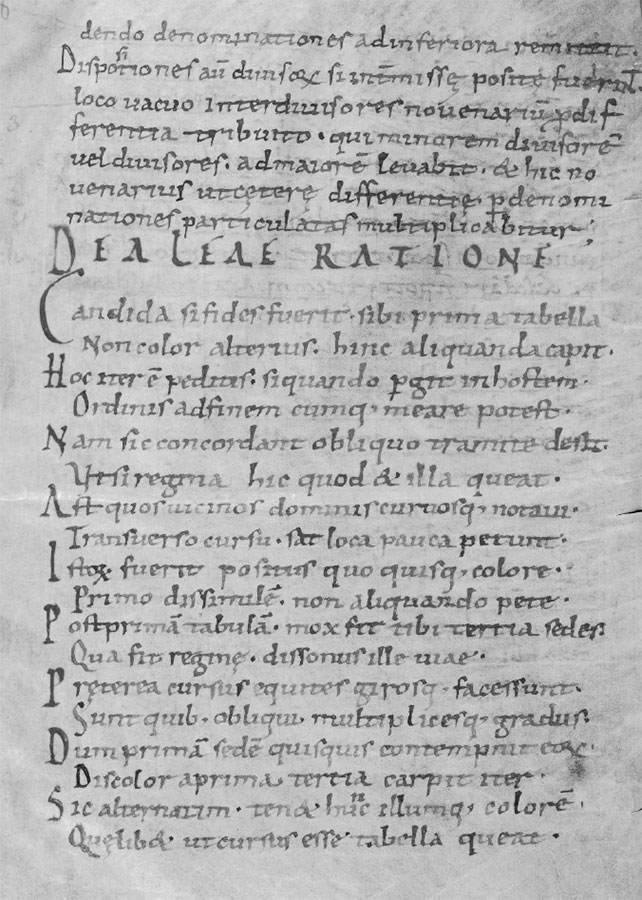 dendo denominationes ad inferiora remittit.
Dispositiones aū diuisoꝝ si int̄missę positę fuerint.
loco uacuo interdiuisores nouenariū ꝓ dif
ferentia tribuito. qui minorem diuisorē
uel diuisores. ad maiorē leuabit. & hic no
uenarius ut cęterę differentię. ꝑ denomi
nationes particulatas multiplicabitur;
DE ALEAE RATIONE
Candida si fides fuerit. sibi prima tabella
Non color alterius. hinc aliquanda capit.
Hoc iter ē peditis. siquando ꝑgit in hostem.
Ordinis ad finem cumq; meare potest.
Nam sic concordant obliquo tramite desit.
Ut si regina hic quod & illa queat.
Ast quos uicinos dominis curuosq; notaui.
Transuerso cursu. sat loca pauca petunt.
Istoꝝ fuerit positus quo quisq; colore.
Primo dissimulē. non aliquando pete.
Post primā tabulā. mox fit tibi tertia sedes.
Qua fit reginę. dissonus ille uiae.
Pręterea cursus equites girosq; facessunt.
Sunt quib; obliqui multiplicesq; gradus.
Dum primā sedē quisquis contempnit eoꝝ.
Discolor a prima tertia carpit iter.
Sic alternatim. tend& hunc illumq; colorē.
Quęlib& ut cursus esse tabella queat.